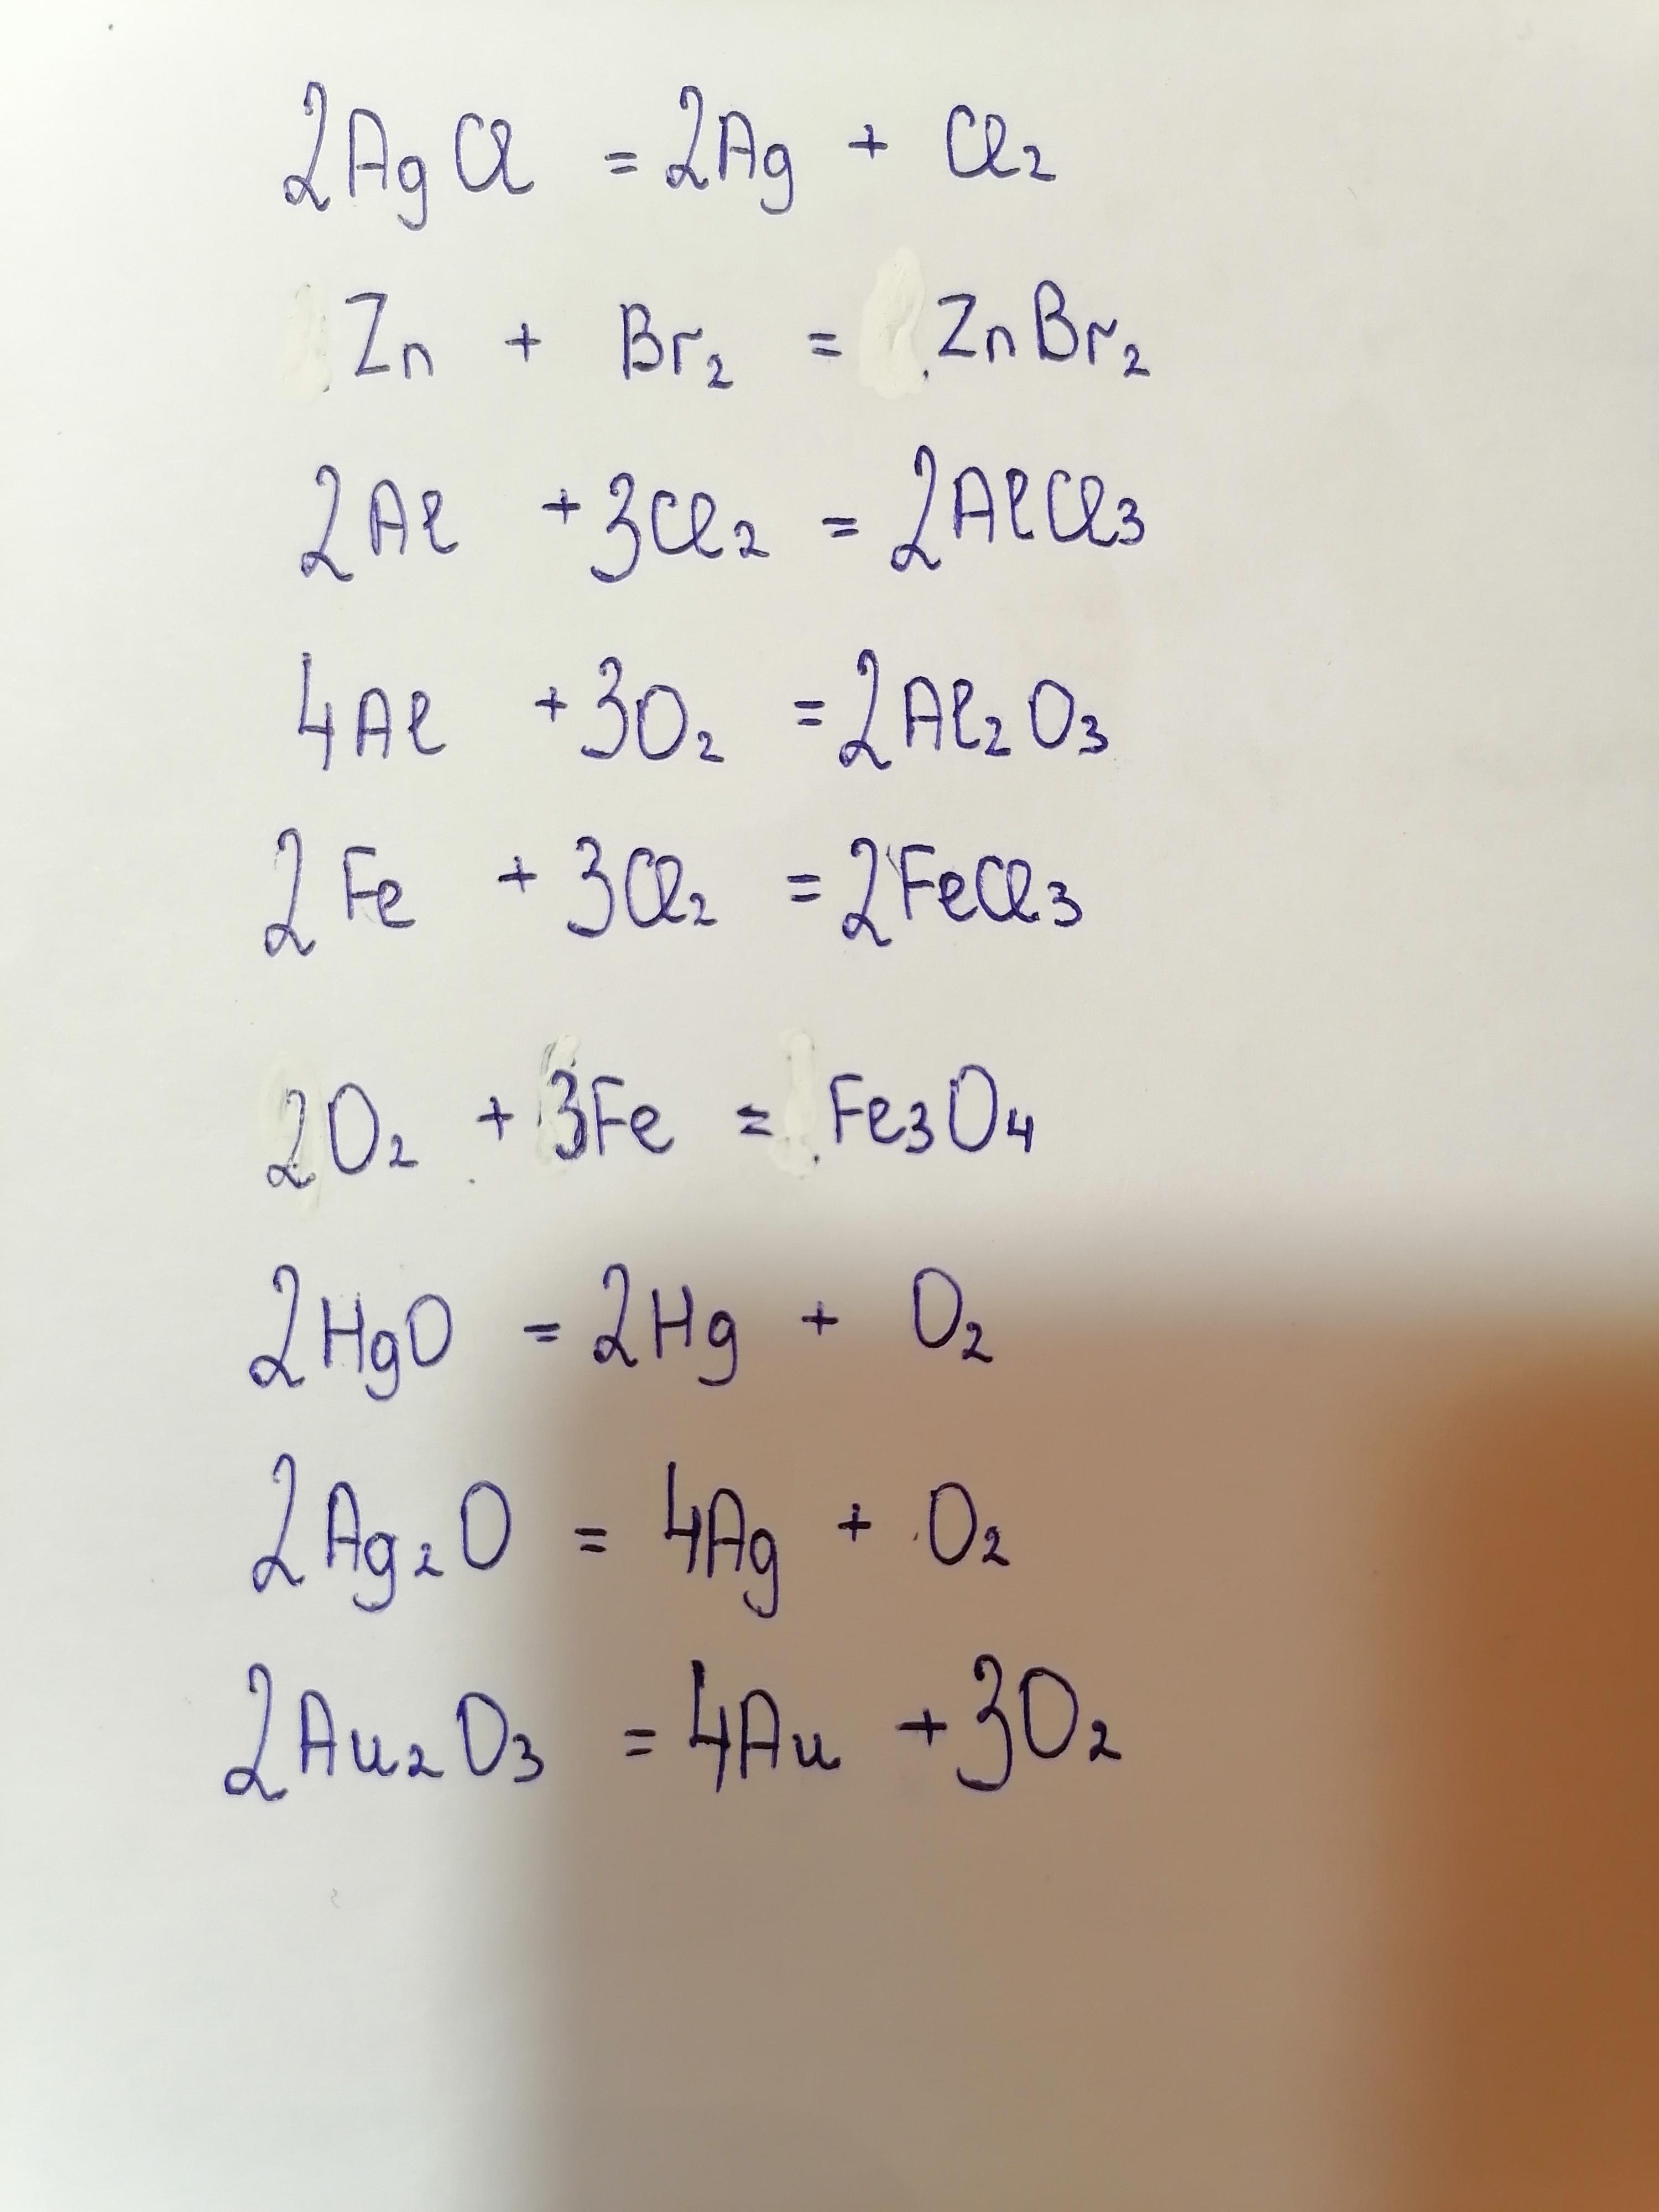 2AgCl = 2Ag + Cl₂
Zn + Br₂ = ZnBr₂
2Al + 3Cl₂ = 2AlCl₃
4Al + 3O₂ = 2Al₂O₃
2Fe + 3Cl₂ = 2FeCl₃
2O₂ + 3Fe = Fe₃O₄
2HgO = 2Hg + O₂
2Ag₂O = 4Ag + O₂
2Au₂O₃ = 4Au + 3O₂